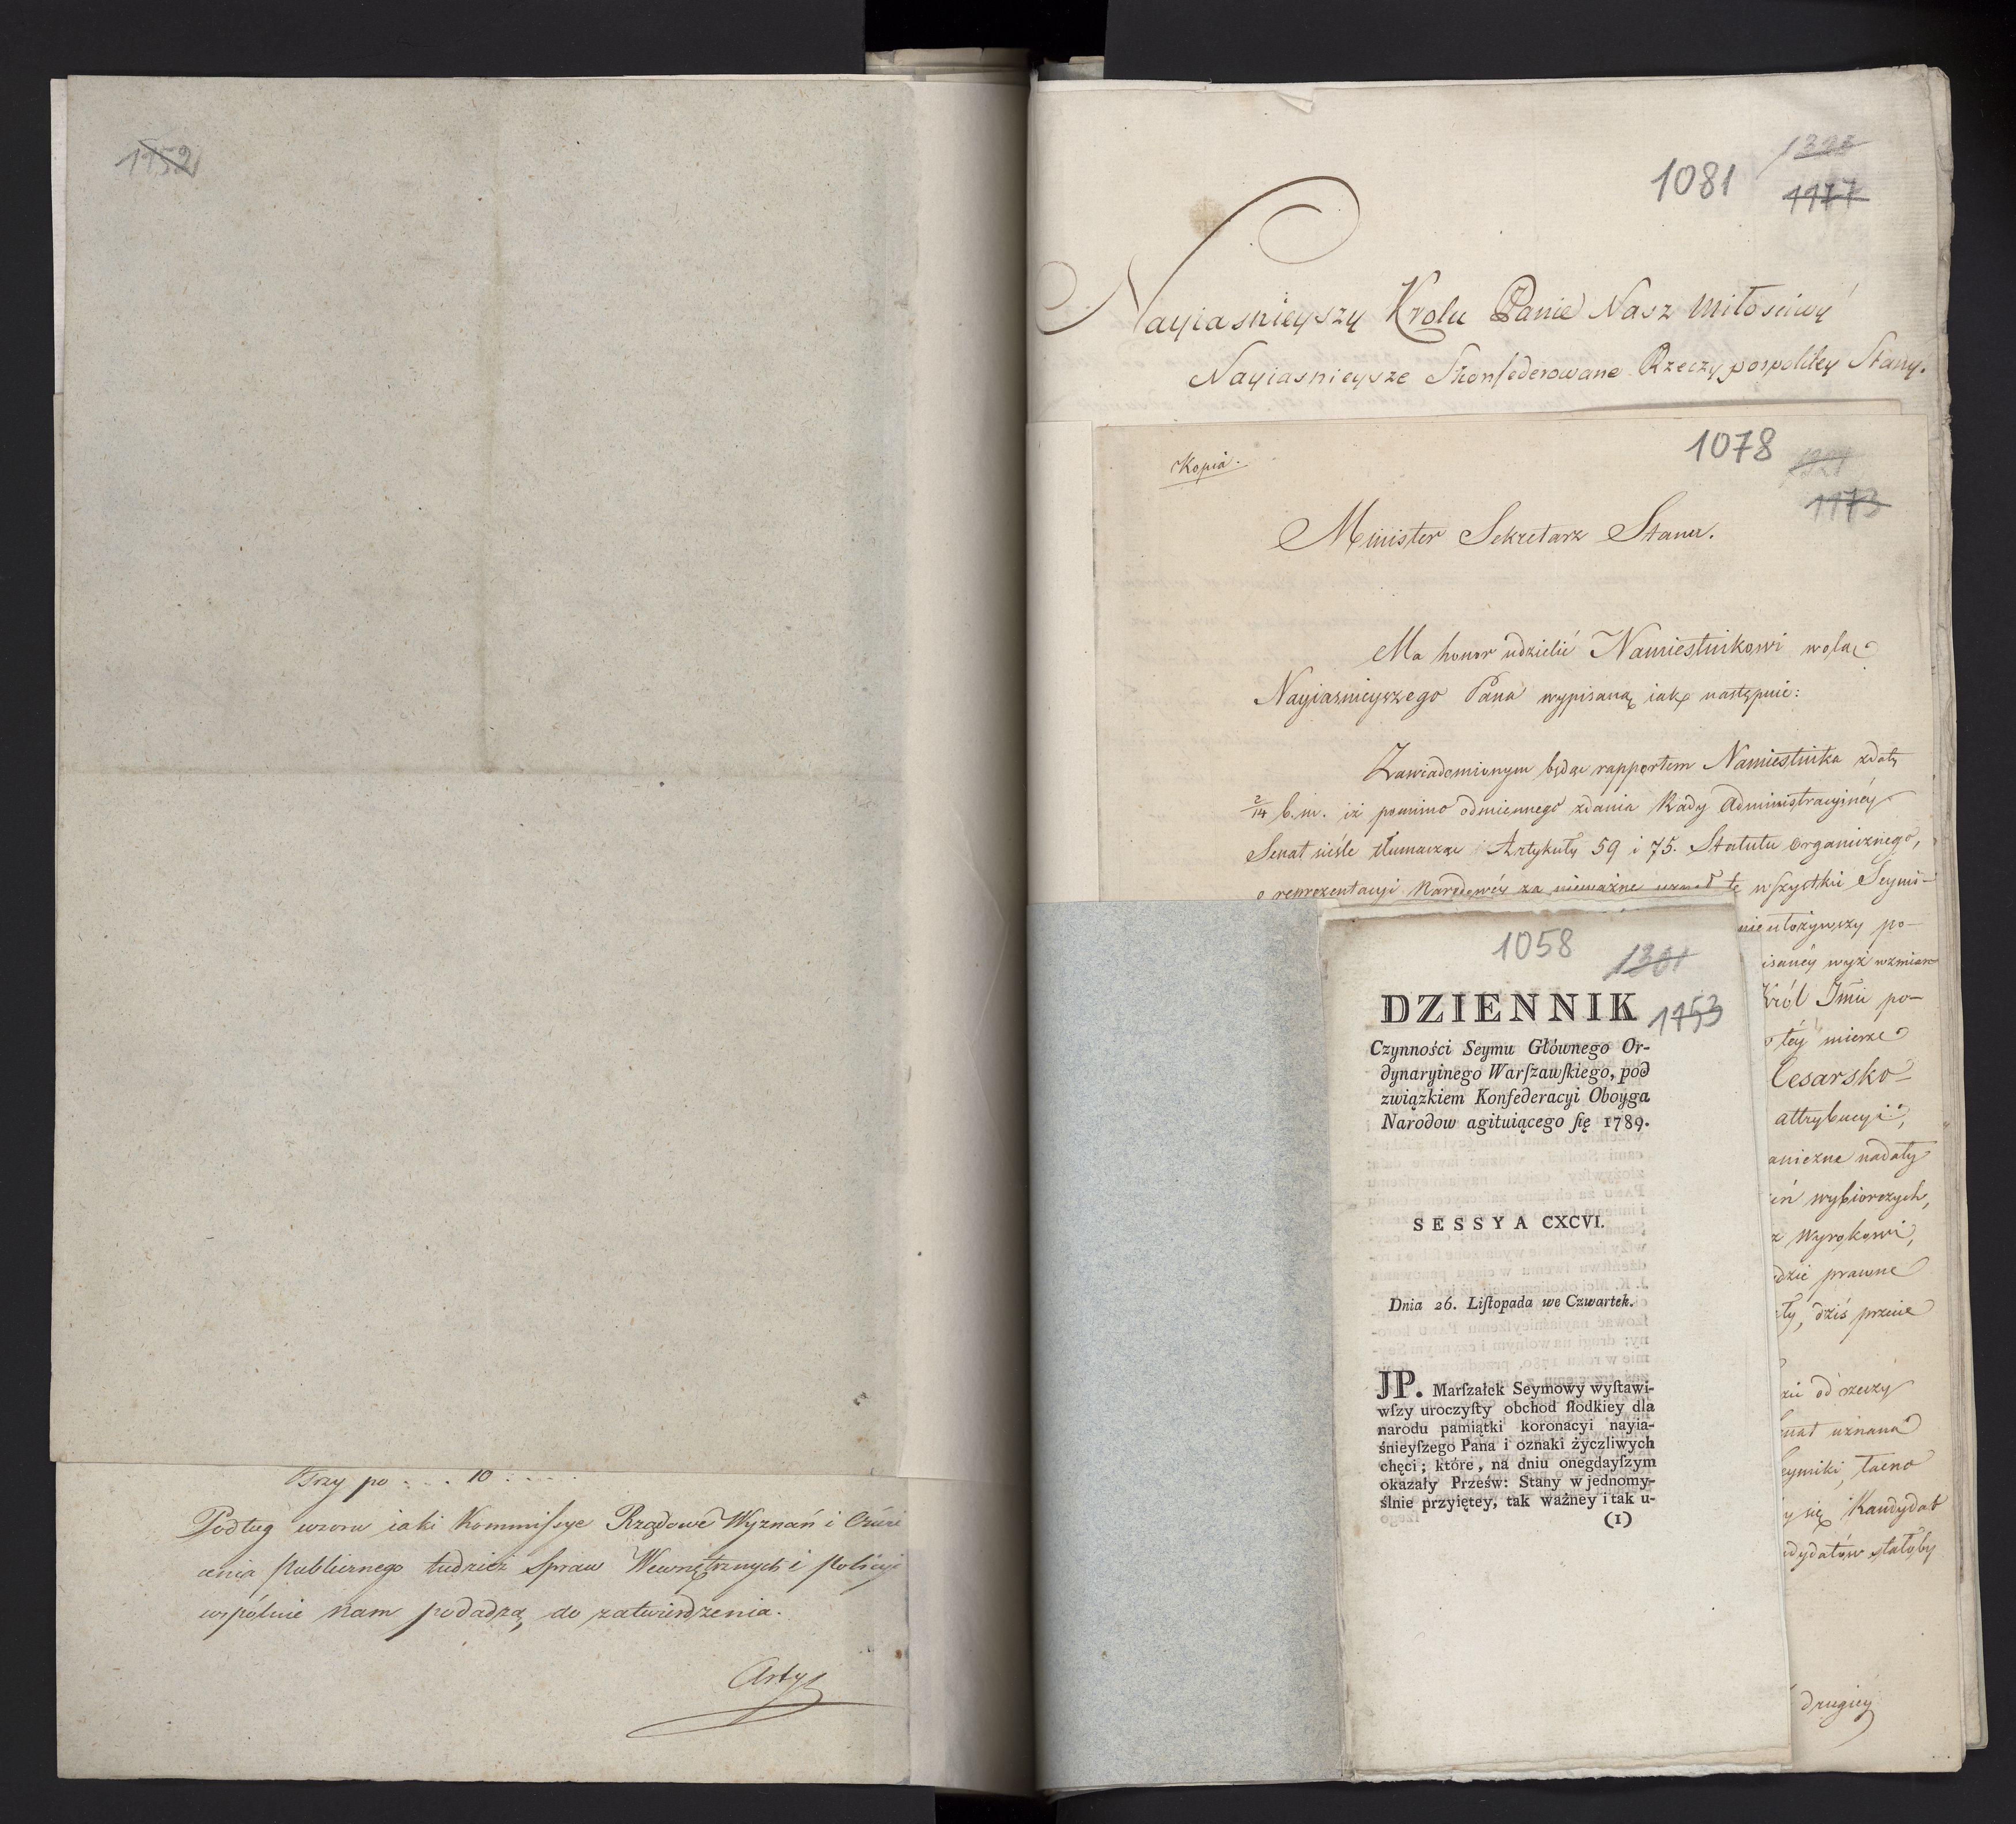 1152
Trzy po . . . 10 . . . .
Podług wzoru iaki Kommissye Rządowe Wyznań i Oświe
cenia Publicznego tudzież Spraw Wewnętrznych i Policyi
wspólnie nam podadzą do zatwierdzenia.
1081
1177
Nayiasnieyszy Krolu Panie Nasz Miłosciwy
Nayiasnieysze Skonfederowane Rzeczypospolitey Stany.
1078
1173
Kopia.
Minister Sekretarz Stanu.
Ma honor udzielić Namiestnikowi wolą
Nayiasnieyszego Pana wypisaną iak następuie:
Zawiadomionym będąc rapportem Namiestnika zdaty
2/14 b. m. iż pomimo odmiennego zdania Rady Administracyinéy
Senat ściśle tłumacząc Artykuły 59 i 75. Statutu Organicznego,
o reprezentacyi Narodowéy za nieważne uznał te wszystkie Seymi-
nieułożywszy po-
isanéy wyż wzmian
Król Jmć po-
téy mierze
Cesarsko-
attrybucyi,
aniczne nadały
eń wybiorczych,
z Wyrokowi,
dzie prawne
ły, dziś prze
od rzeczy
nat uznana
eymiki, tacno
y się Kandydat
dydatów stałoby
drugiey
1058
1301
1153
DZIENNIK
Czynności Seymu Głównego Or-
dynaryinego Warſzawſkiego, pod
związkiem Konfederacyi Oboyga
Narodow agituiącego ſię 1789.
SESSYA CXCVI.
Dnia 26. Liſtopada we Czwartek.
JP. Marſzałek Seymowy wyſtawi-
wſzy uroczyſty obchod ſłodkiey dla
narodu pamiątki koronacyi nayia-
śnieyſzego Pana i oznaki życzliwych
chęci; które, na dniu onegdayſzym
okazały Prześw: Stany w jednomy-
ślnie przyiętey, tak ważney i tak u-
(1)